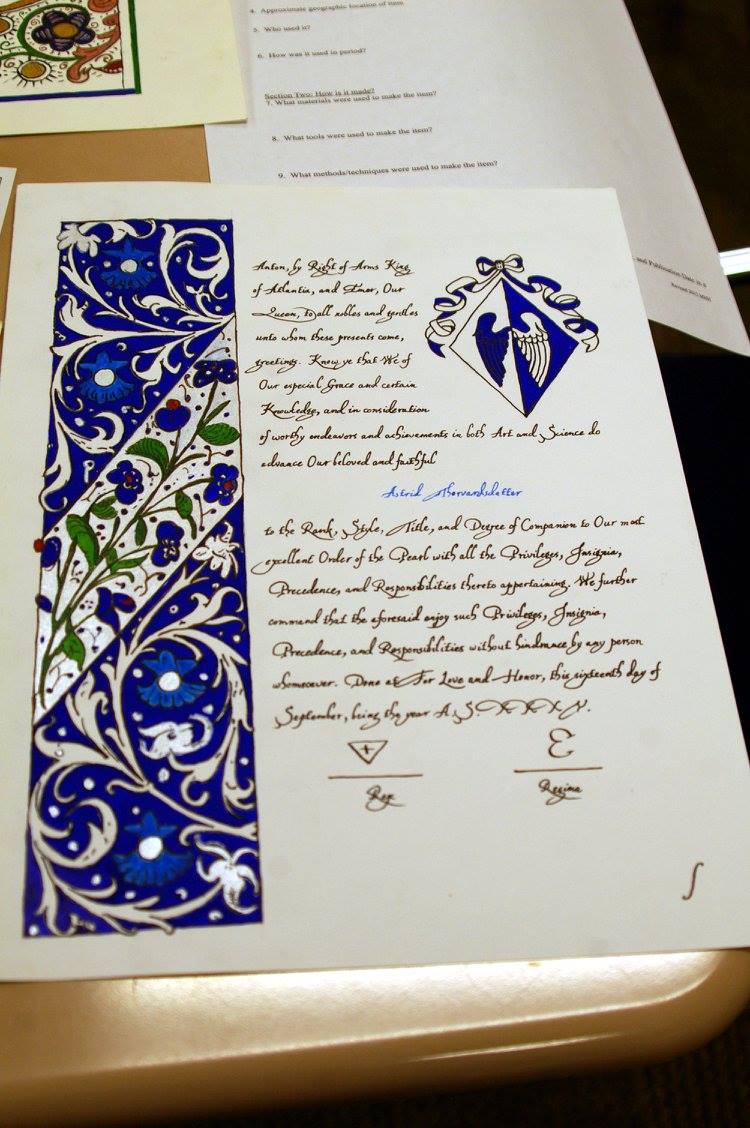 4. Approximate geographic location of item
5. Who used it?
6. How was it used in period?
Section Two: How is it made?
7. What materials were used to make the item?
8. What tools were used to make the item?
9. What methods/techniques were used to make the item?
and Publication Date in a
Anton, by Right of Arms King
of Atlantia, and Luned, Our
Queen, to all nobles and gentles
unto whom these presents come,
greetings. Know ye that We of
Our especial Grace and certain
Knowledge, and in consideration
of worthy endeavors and achievements in both Art and Science do
advance Our beloved and faithful
Astrid Thorvardsdatter
to the Rank, Style, Title, and Degree of Companion to Our most
excellent Order of the Pearl with all the Privileges, Insignia,
Precedence, and Responsibilities thereto appertaining. We further
command that the aforesaid enjoy such Privileges, Insignia,
Precedence, and Responsibilities without hindrance by any person
whomsoever. Done at For Love and Honor, this sixteenth day of
September, being the year A.S.
Rex
Regina